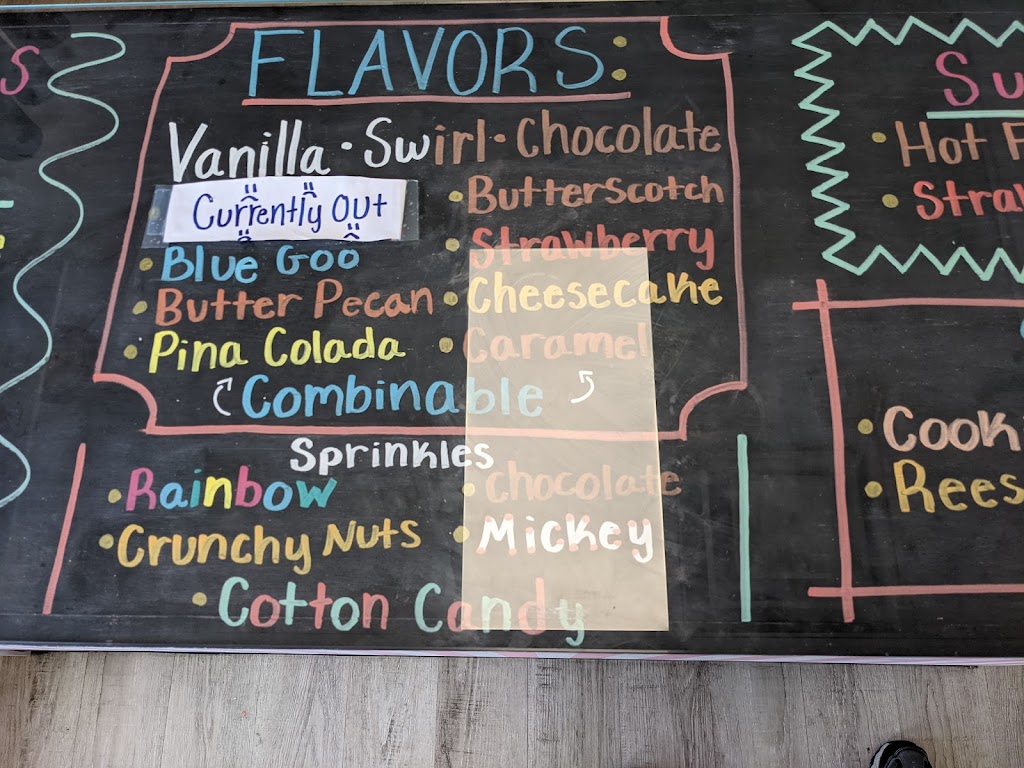 FLAVORS:
Vanilla • Swirl • Chocolate
Currently Out
• Butterscotch
• Blue Goo
• Strawberry
• Butter Pecan
• Cheesecake
• Pina Colada
• Caramel
Combinable
Sprinkles
• Rainbow
• Chocolate
• Crunchy Nuts
• Mickey
• Cotton Candy
S
Su
• Hot F
• Straw
• Cook
• Rees